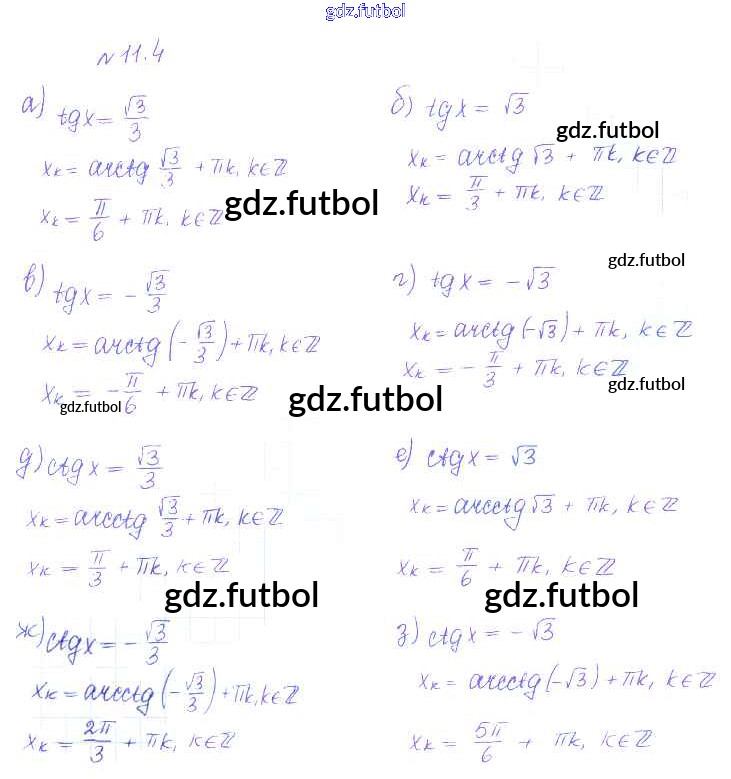 gdz.futbol
№ 11.4
а) tg x = √3/3
xₖ = arctg √3/3 + πk, k∈ℤ
xₖ = π/6 + πk, k∈ℤ
gdz.futbol
б) tg x = √3
gdz.futbol
xₖ = arctg √3 + πk, k∈ℤ
xₖ = π/3 + πk, k∈ℤ
в) tg x = -√3/3
xₖ = arctg (-√3/3) + πk, k∈ℤ
xₖ = -π/6 + πk, k∈ℤ
gdz.futbol
gdz.futbol
gdz.futbol
г) tg x = -√3
xₖ = arctg (-√3) + πk, k∈ℤ
xₖ = -π/3 + πk, k∈ℤ
gdz.futbol
д) ctg x = √3/3
xₖ = arcctg √3/3 + πk, k∈ℤ
xₖ = π/3 + πk, k∈ℤ
gdz.futbol
е) ctg x = √3
xₖ = arcctg √3 + πk, k∈ℤ
xₖ = π/6 + πk, k∈ℤ
gdz.futbol
ж) ctg x = -√3/3
xₖ = arcctg (-√3/3) + πk, k∈ℤ
xₖ = 2π/3 + πk, k∈ℤ
з) ctg x = -√3
xₖ = arcctg (-√3) + πk, k∈ℤ
xₖ = 5π/6 + πk, k∈ℤ